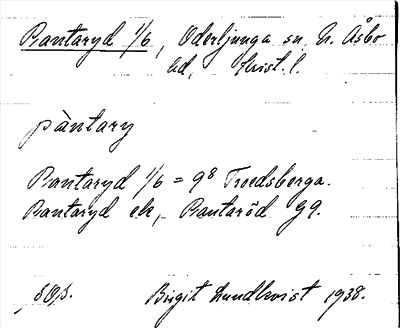 Pantaryd 1/6, Oderljunga sn, N. Åsbo
hd, Krist. l.
pàntary
Pantaryd 1/6 = 9⁸ Troedsberga.
Pantaryd ek, Pantaröd G9.
Birgit Lundkvist 1938.